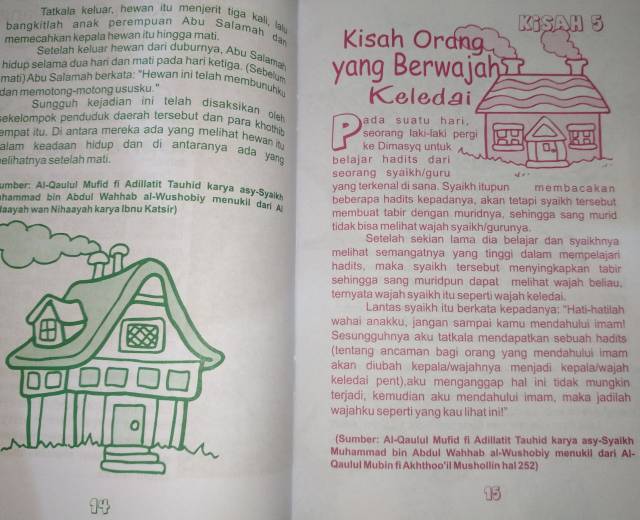 Tatkala keluar, hewan itu menjerit tiga kali, lalu
bangkitlah anak perempuan Abu Salamah dan
memecahkan kepala hewan itu hingga mati.
Setelah keluar hewan dari duburnya, Abu Salamah
hidup selama dua hari dan mati pada hari ketiga. (Sebelum
mati) Abu Salamah berkata: "Hewan ini telah membunuhku
dan memotong-motong ususku."
Sungguh kejadian ini telah disaksikan oleh
sekelompok penduduk daerah tersebut dan para khothib
empat itu. Di antara mereka ada yang melihat hewan itu
alam keadaan hidup dan di antaranya ada yang
elihatnya setelah mati.
umber: Al-Qaulul Mufid fi Adillatit Tauhid karya asy-Syaikh
hammad bin Abdul Wahhab al-Wushobiy menukil dari Al
daayah wan Nihaayah karya Ibnu Katsir)
14
KISAH 5
Kisah Orang
yang Berwajah
Keledai
Pada suatu hari,
seorang laki-laki pergi
ke Dimasyq untuk
belajar hadits dari
seorang syaikh/guru
yang terkenal di sana. Syaikh itupun membacakan
beberapa hadits kepadanya, akan tetapi syaikh tersebut
membuat tabir dengan muridnya, sehingga sang murid
tidak bisa melihat wajah syaikh/gurunya.
Setelah sekian lama dia belajar dan syaikhnya
melihat semangatnya yang tinggi dalam mempelajari
hadits, maka syaikh tersebut menyingkapkan tabir
sehingga sang muridpun dapat melihat wajah beliau,
ternyata wajah syaikh itu seperti wajah keledai.
Lantas syaikh itu berkata kepadanya: "Hati-hatilah
wahai anakku, jangan sampai kamu mendahului imam!
Sesungguhnya aku tatkala mendapatkan sebuah hadits
(tentang ancaman bagi orang yang mendahului imam
akan diubah kepala/wajahnya menjadi kepala/wajah
keledai pent),aku menganggap hal ini tidak mungkin
terjadi, kemudian aku mendahului imam, maka jadilah
wajahku seperti yang kau lihat ini!"
(Sumber: Al-Qaulul Mufid fi Adillatit Tauhid karya asy-Syaikh
Muhammad bin Abdul Wahhab al-Wushobiy menukil dari Al-
Qaulul Mubin fi Akhthoo'il Mushollin hal 252)
15